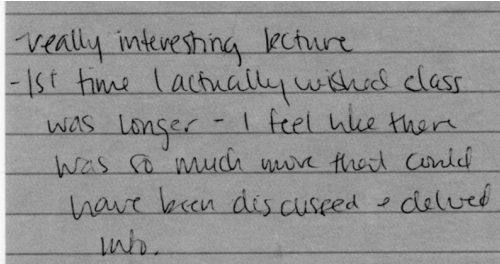 -really interesting lecture
-1st time I actually wished class
was longer - I feel like there
was so much more that could
have been discussed & delved
into.